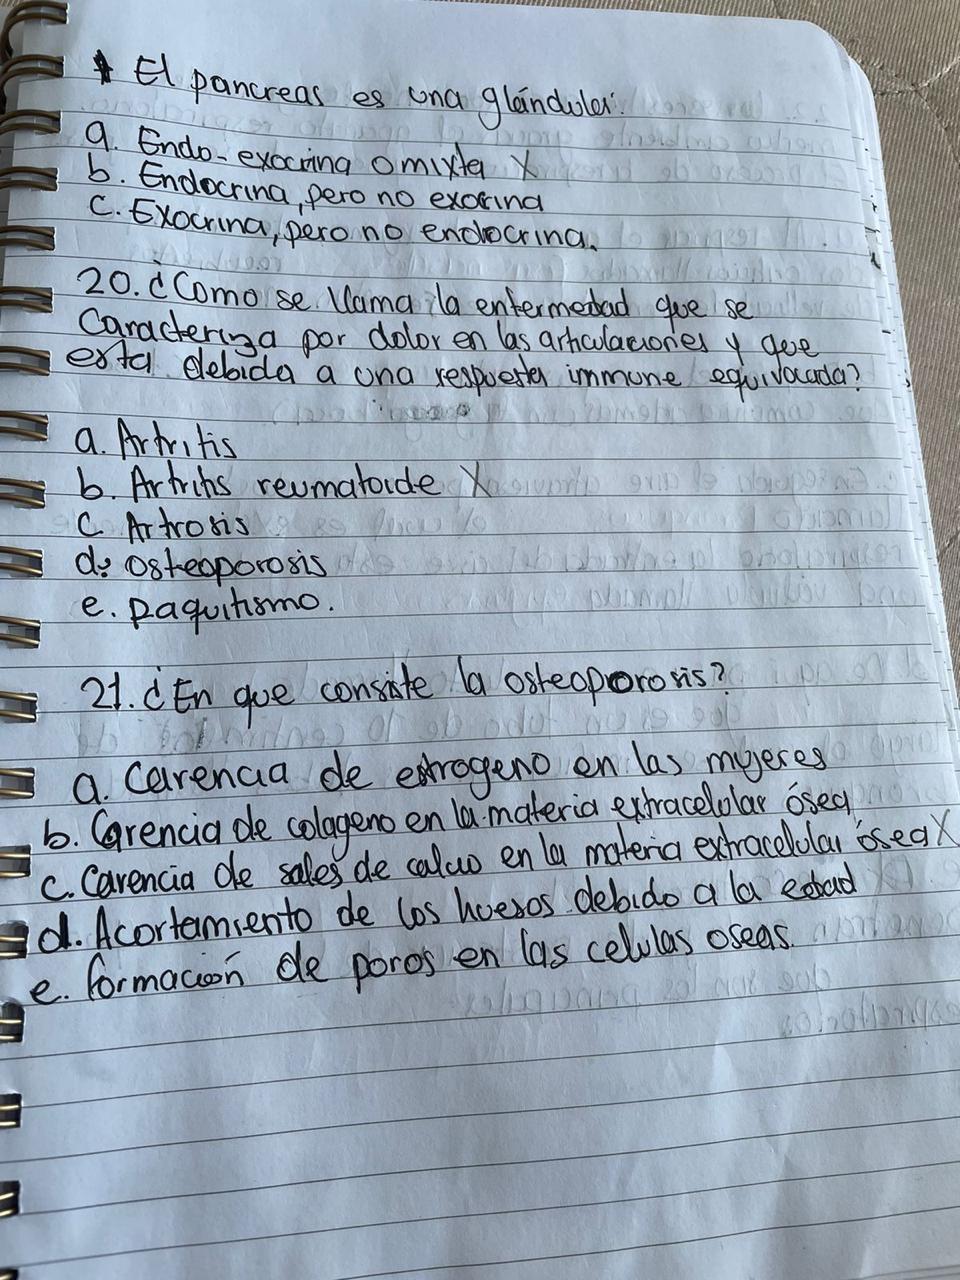 * El pancreas es una glándula:
a. Endo-exocrina o mixta X
b. Endocrina, pero no exocrina
c. Exocrina, pero no endocrina.
20. ¿Como se llama la enfermedad que se
Caracteriza por dolor en las articulaciones y que
esta debida a una respuesta immune equivocada?
a. Artritis
b. Artritis reumatoide X
C. Artrosis
d. Osteoporosis
e. Raquitismo.
21. ¿En que consiste la osteoporosis?
a. Carencia de estrogeno en las mujeres
b. Carencia de colageno en la materia extracelular ósea
c. Carencia de sales de calcio en la materia extracelular ósea X
d. Acortamiento de los huesos debido a la edad
e. formación de poros en las celulas oseas.